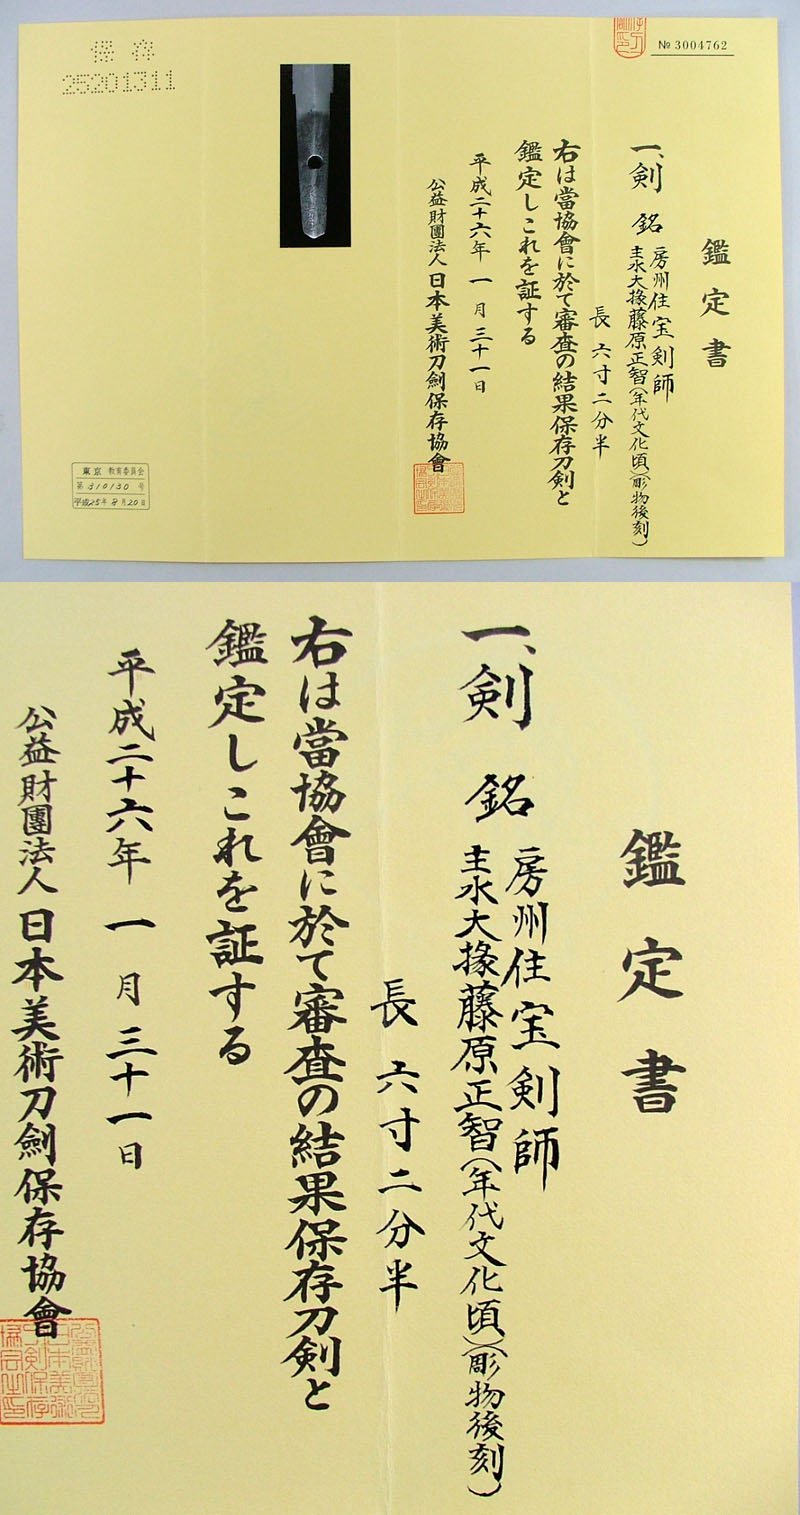 № 3004762
鑑定書
一、剣 銘 房州住宝剣師
主水大掾藤原正智(年代文化頃)(彫物後刻)
長 六寸二分半
右は當協會に於て審査の結果保存刀剣と
鑑定しこれを証する
平成二十六年 一月 三十一日
公益財團法人 日本美術刀劍保存協會
保存
25201311
東京 教育委員会
第 310130 号
平成25年 8月20日
鑑定書
一、剣 銘 房州住宝剣師
主水大掾藤原正智(年代文化頃)(彫物後刻)
長 六寸二分半
右は當協會に於て審査の結果保存刀剣と
鑑定しこれを証する
平成二十六年 一月 三十一日
公益財團法人 日本美術刀劍保存協會